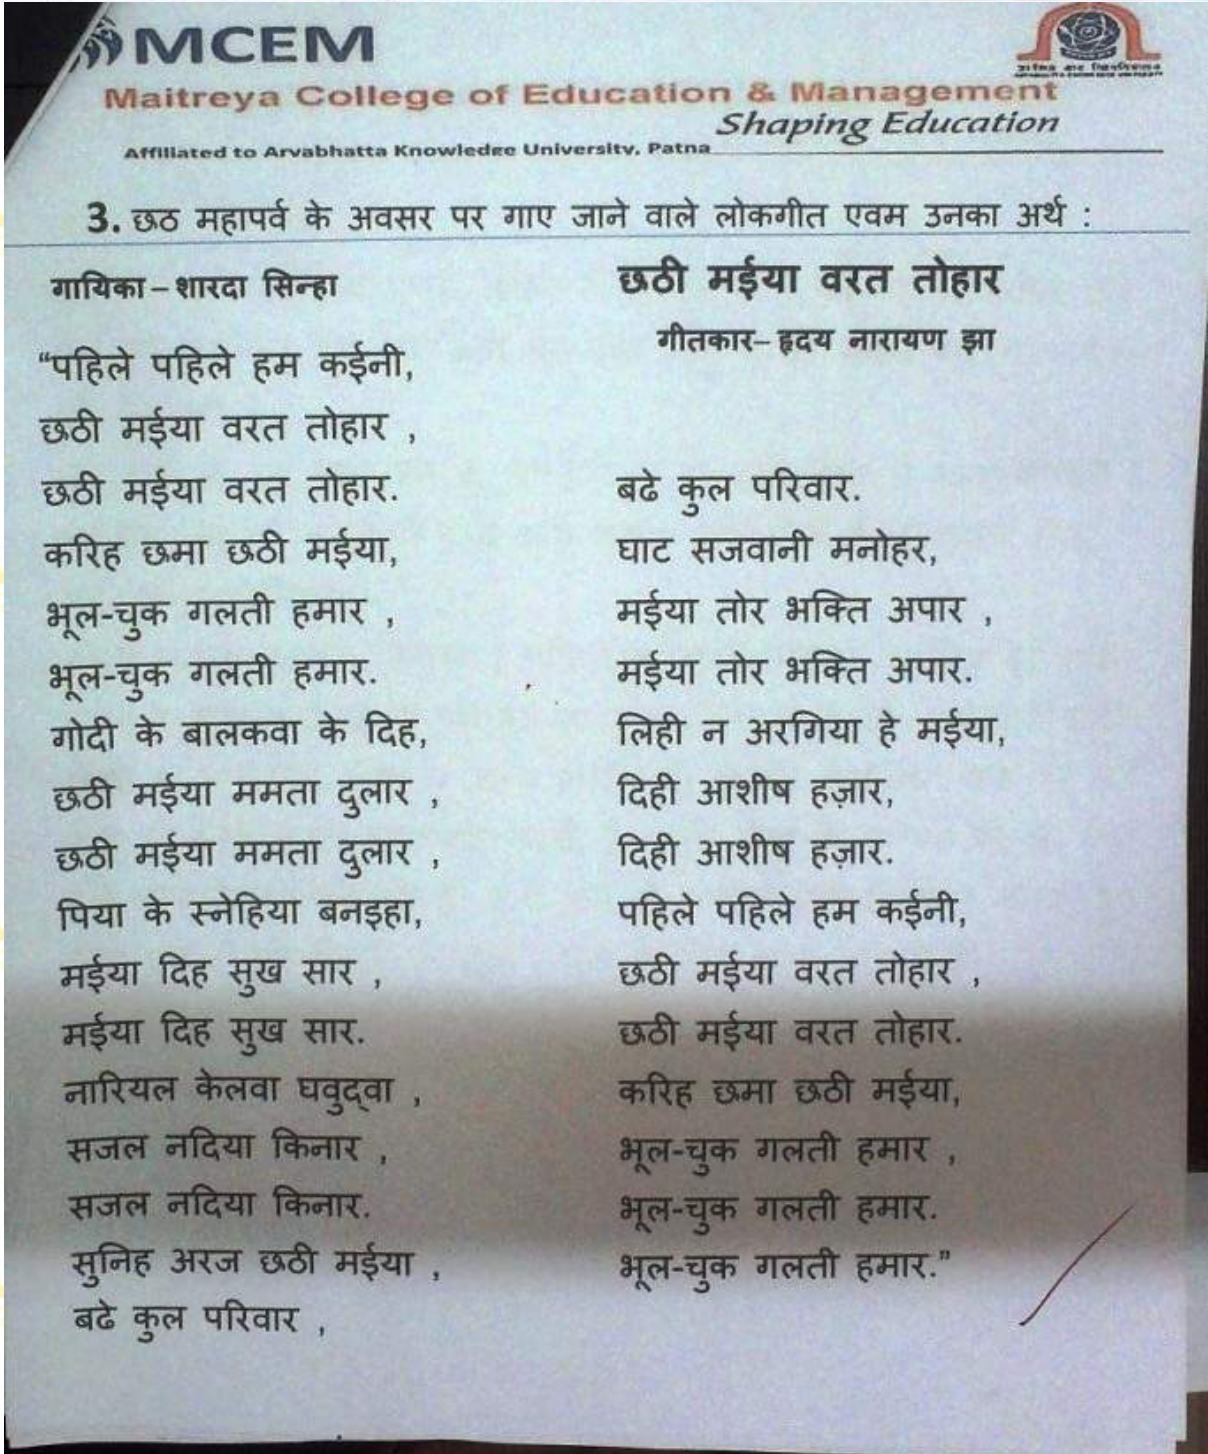 MCEM
Maitreya College of Education & Management
Shaping Education
Affiliated to Aryabhatta Knowledge University, Patna
3. छठ महापर्व के अवसर पर गाए जाने वाले लोकगीत एवम उनका अर्थ :
गायिका – शारदा सिन्हा
छठी मईया वरत तोहार
गीतकार– हृदय नारायण झा
“पहिले पहिले हम कईनी,
छठी मईया वरत तोहार ,
छठी मईया वरत तोहार.
करिह छमा छठी मईया,
भूल-चुक गलती हमार ,
भूल-चुक गलती हमार.
गोदी के बालकवा के दिह,
छठी मईया ममता दुलार ,
छठी मईया ममता दुलार ,
पिया के स्नेहिया बनइहा,
मईया दिह सुख सार ,
मईया दिह सुख सार.
नारियल केलवा घवुद्वा ,
सजल नदिया किनार ,
सजल नदिया किनार.
सुनिह अरज छठी मईया ,
बढे कुल परिवार ,
बढे कुल परिवार.
घाट सजवानी मनोहर,
मईया तोर भक्ति अपार ,
मईया तोर भक्ति अपार.
लिही न अरगिया हे मईया,
दिही आशीष हज़ार,
दिही आशीष हज़ार.
पहिले पहिले हम कईनी,
छठी मईया वरत तोहार ,
छठी मईया वरत तोहार.
करिह छमा छठी मईया,
भूल-चुक गलती हमार ,
भूल-चुक गलती हमार.
भूल-चुक गलती हमार.”